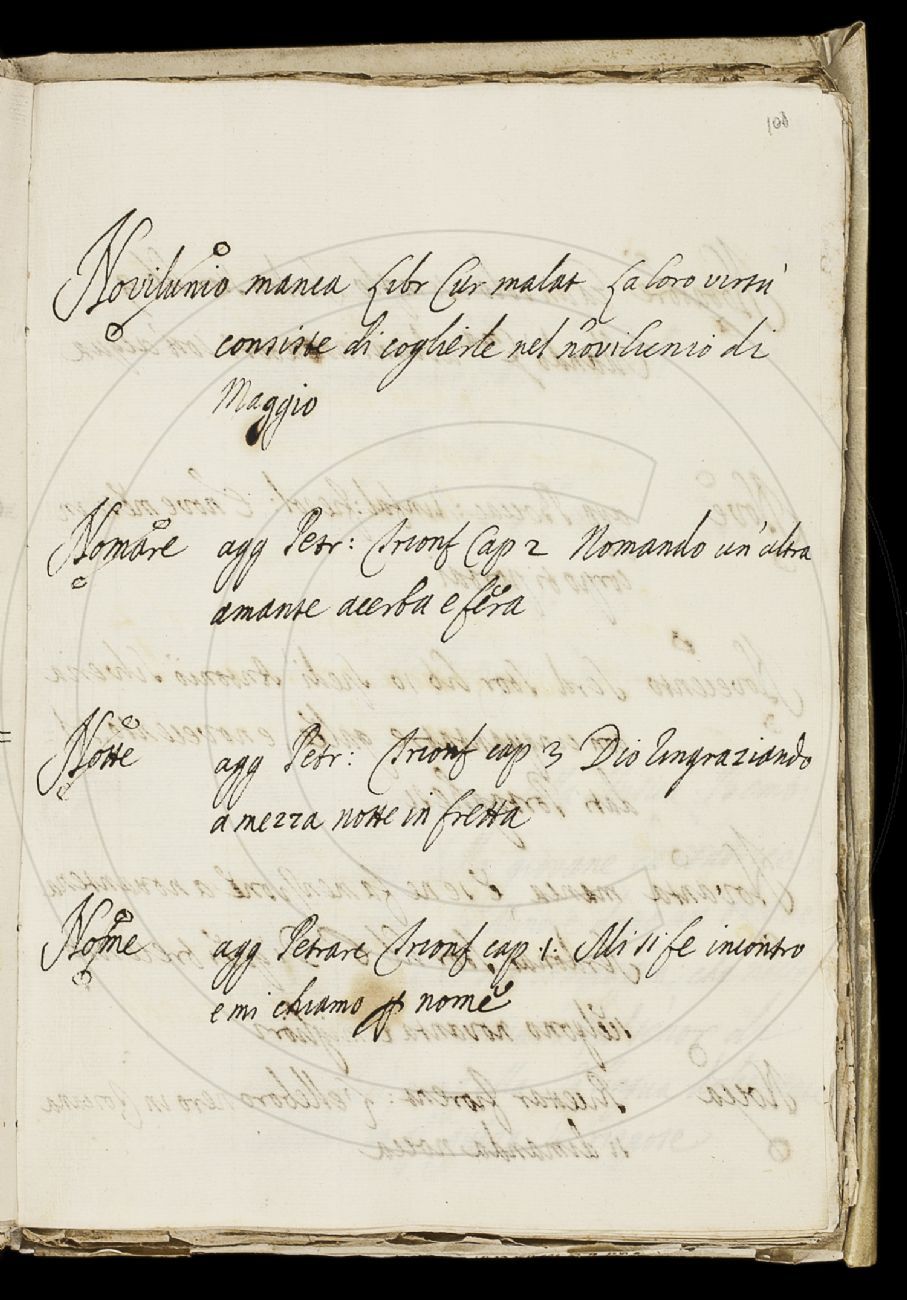 108
Novilunio manca Libr Cur malat La loro virtù
consiste di coglierle nel novilunio di
Maggio
Nomare agg Petr: Trionf Cap 2 Nomando un'altra
amante acerba e fera
Notte agg Petr: Trionf cap 3 Dio ringraziando
a mezza notte in fretta
Nome agg Petrarc Trionf cap 1. Mi si fe incontro
e mi chiamo nome